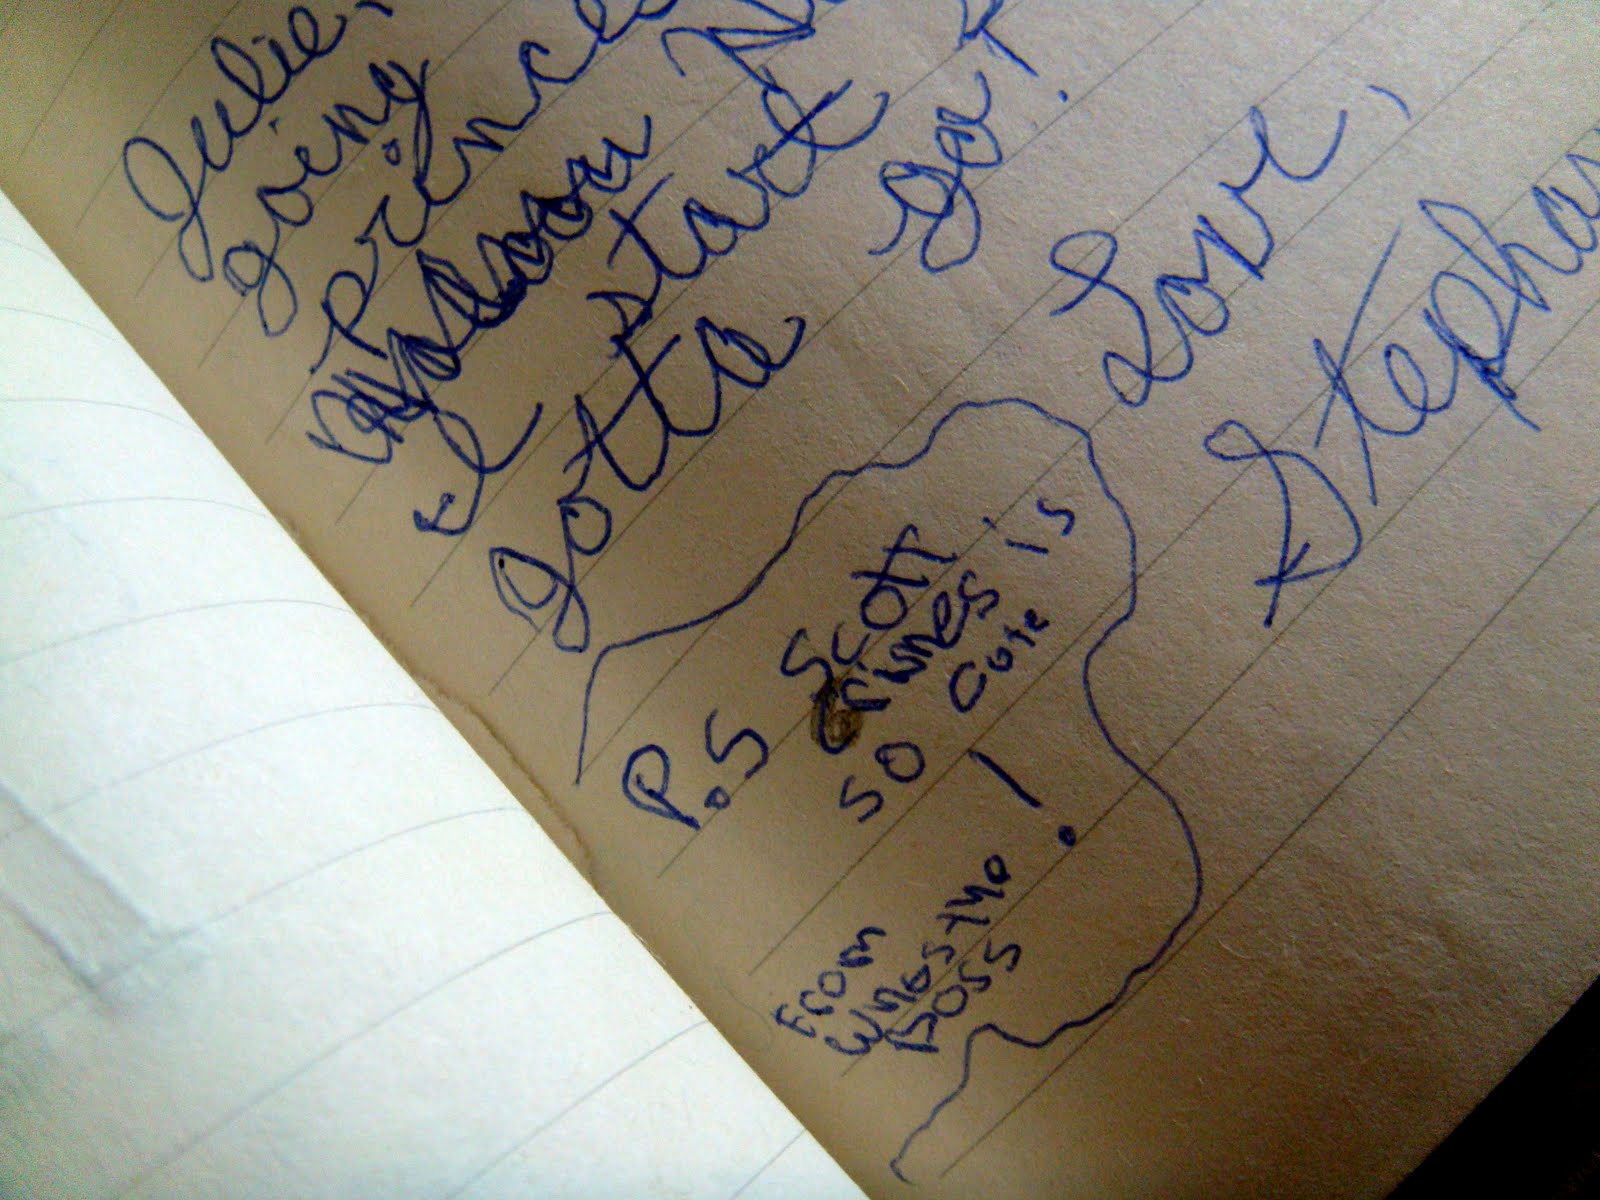 Julie,
going
Prince
I start
gotta go!
Love,
Stephan
P.S Scott
Grimes is
so cute
!
From
Who's the
Boss